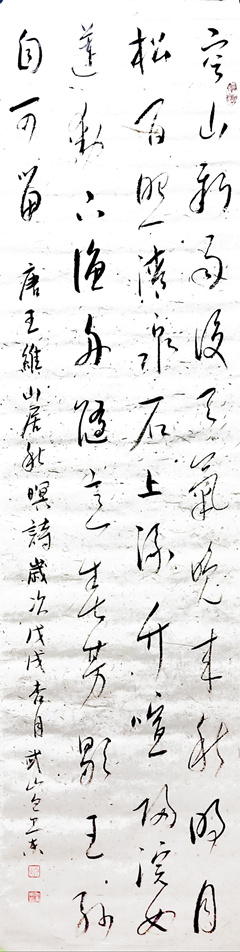 空山新雨後天氣晚來秋明月
松間照清泉石上流竹喧歸浣女
蓮動下漁舟隨意春芳歇王孫
自可留 唐王維山居秋暝詩歲次戊戌杏月武山